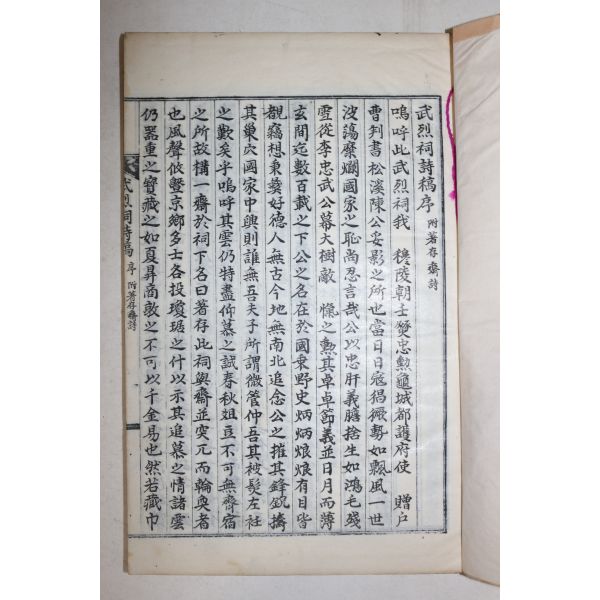 武烈祠詩稿序 附著存齋詩
嗚呼此武烈祠我 穆陵朝士勞忠勲龜城都護府使 贈戶
曹判書松溪陳公妥影之所也當日日寇猖獗勢如飄風一世
波蕩糜爛國家之恥尚忍言哉公以忠肝義膽捨生如鴻毛殘
雪從李忠武公幕大樹敵 愾之勲其卓卓節義並日月而薄
玄間迄數百載之下公之名在於國乗野史炳炳烺烺有目皆
覩竊想秉彜好德人無古今地無南北追念公之摧其鋒銳擒
其巢穴國家中興則誰無吾夫子所謂微管仲吾其被髮左衽
之歎矣乎嗚呼其雲仍特盡仰慕之誠春秋俎豆不可無齋宿
之所故構一齋於祠下名曰著存此祠與齋並突兀而輪奐者
也風聲攸曁京鄉多士各投瓊琚之什以示其追慕之情諸雲
仍器重之寶藏之如夏鼎商敦之不可以千金易也然若藏巾
武烈祠詩稿 序 附著存齋詩